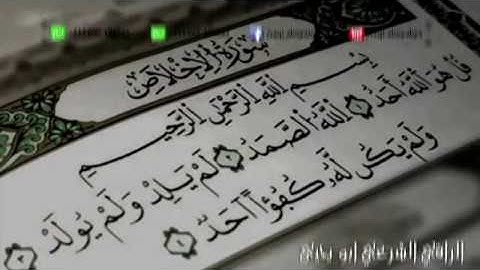 سُورَةُ الْإِخْلَاصِ
بِسْمِ اللَّهِ الرَّحْمَٰنِ الرَّحِيمِ
قُلْ هُوَ اللَّهُ أَحَدٌ ۝ اللَّهُ الصَّمَدُ ۝ لَمْ يَلِدْ وَلَمْ يُولَدْ ۝
وَلَمْ يَكُن لَّهُ كُفُوًا أَحَدٌ ۝
الراقي الشرعي ابو يحيى